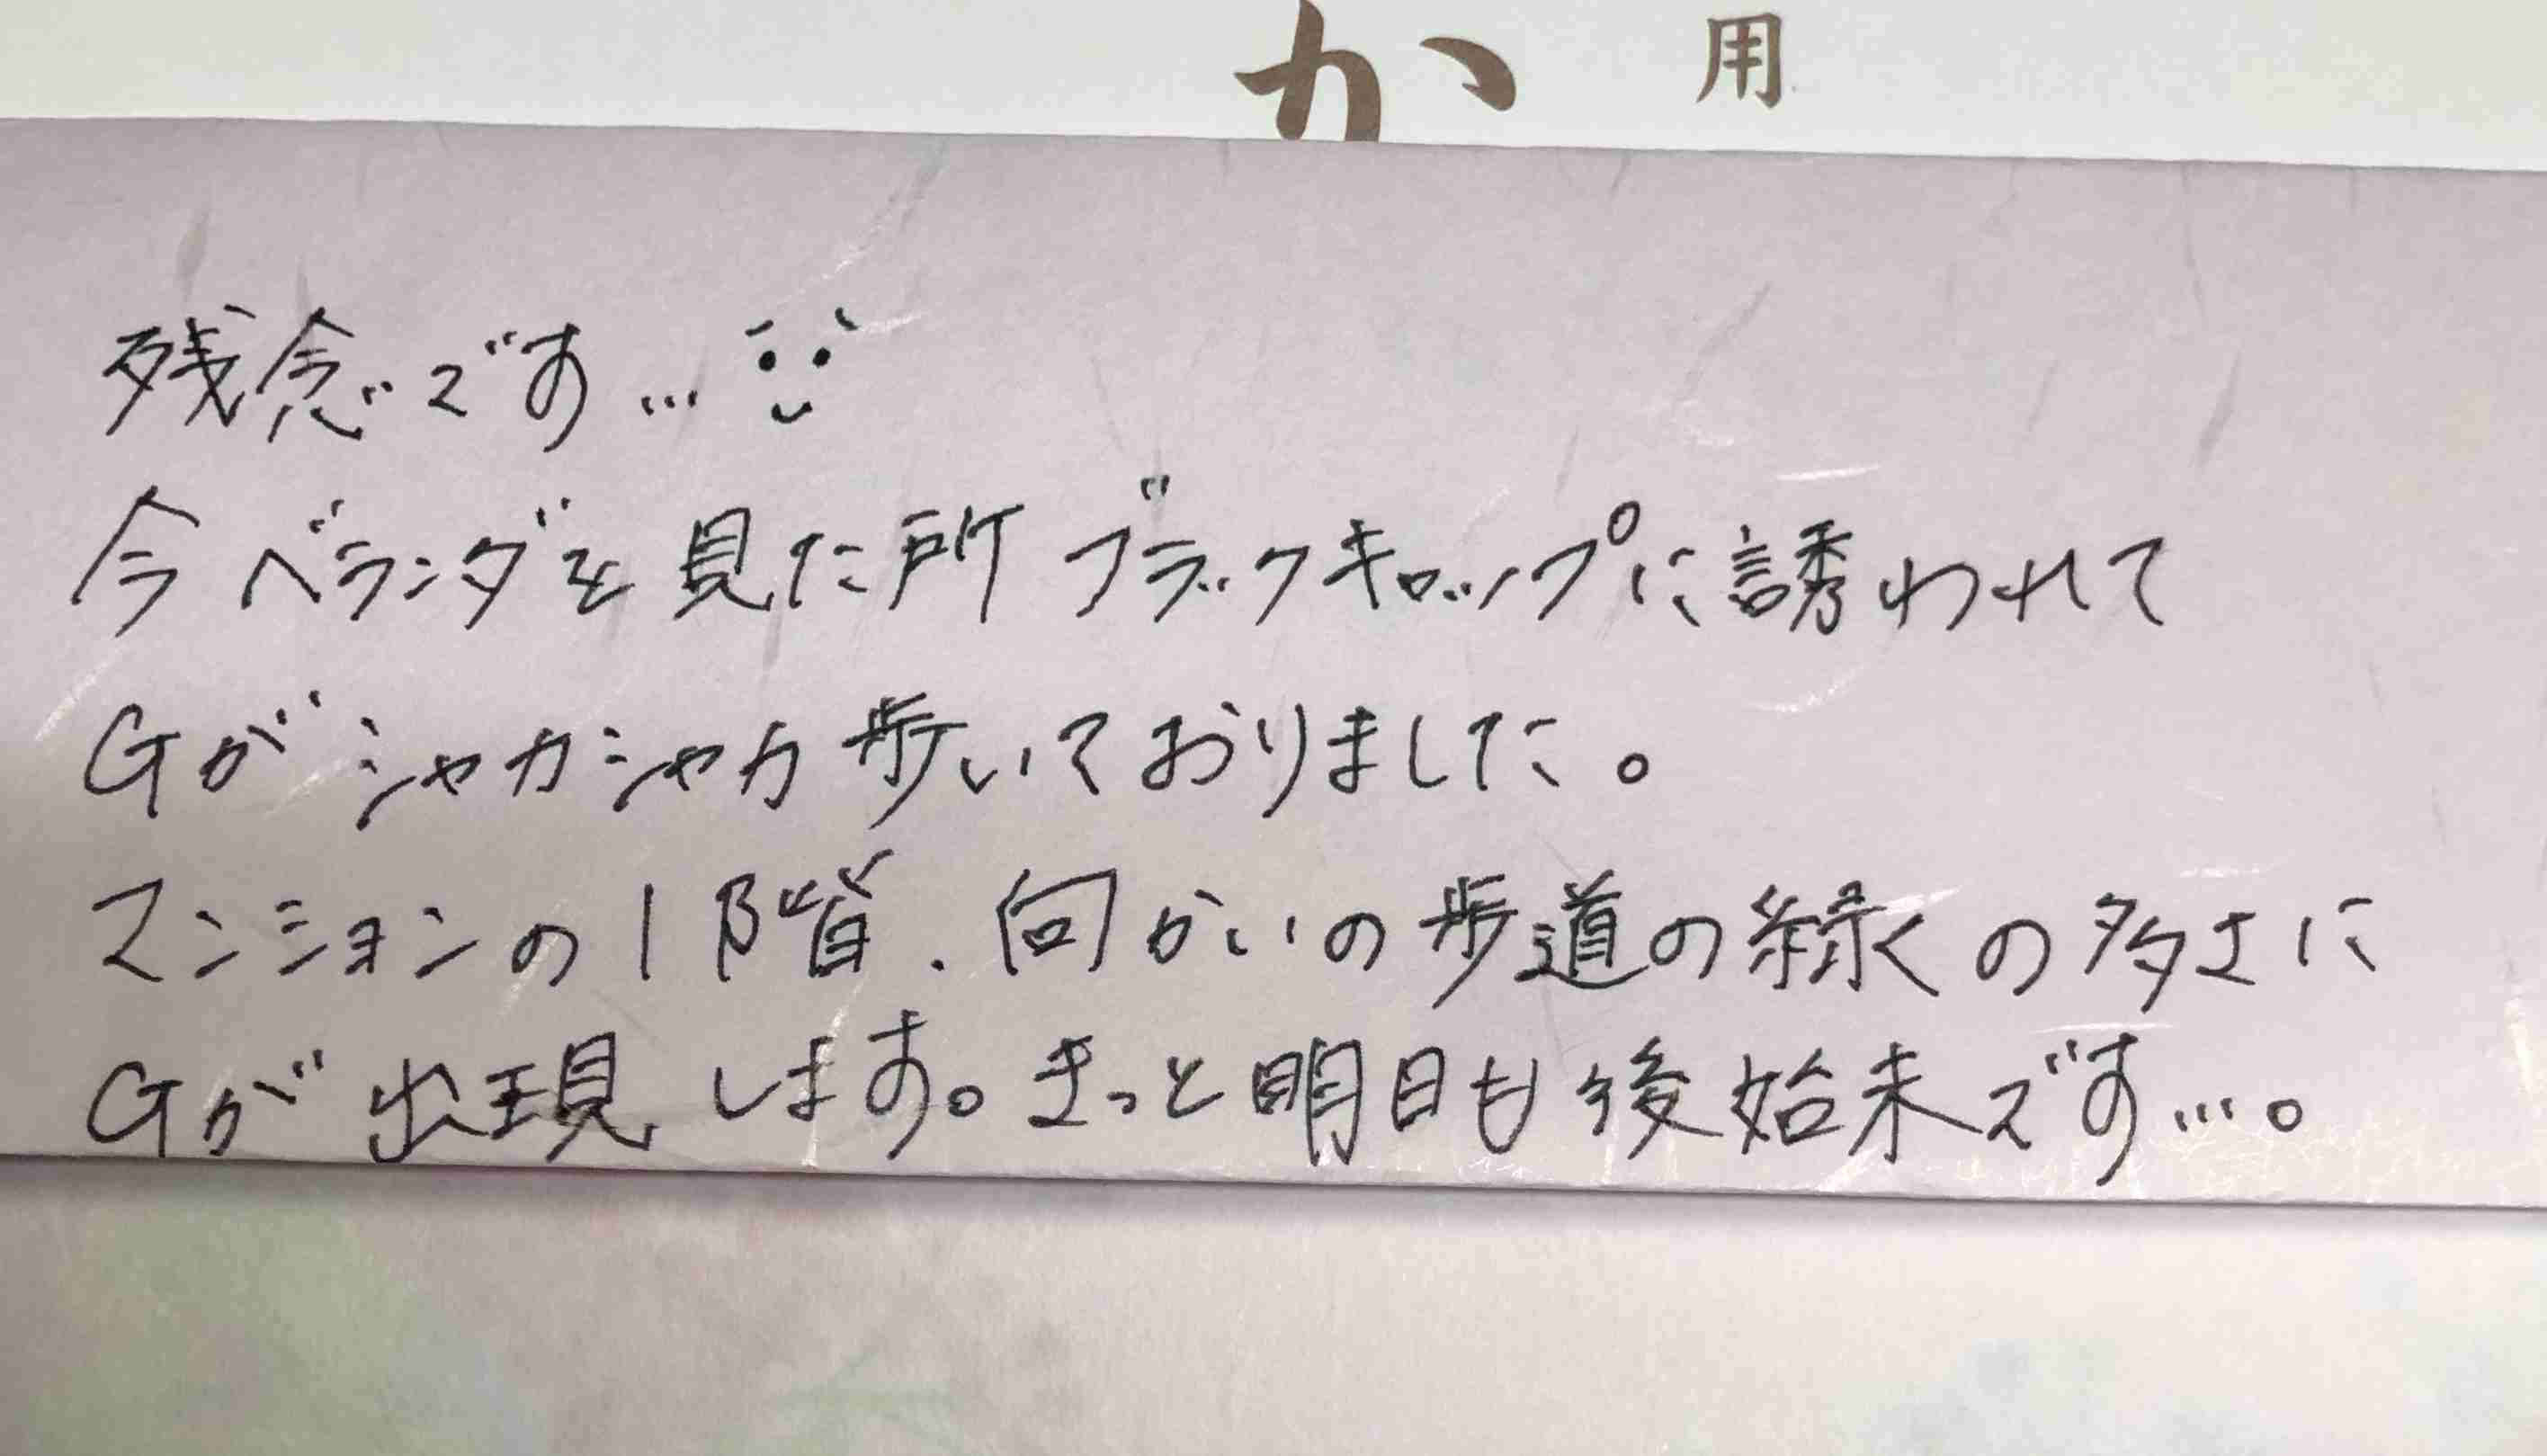 か 用
残念です…
今ベランダを見た所ブラックキャップに誘われて
Gがシャカシャカ歩いておりました。
マンションの1階、向かいの歩道の緑の多さに
Gが出現します。きっと明日も後始末です…。